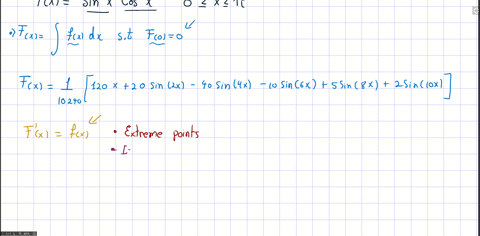 f(x) = Sin x Cos x 0 ≤ x ≤ π
•) F(x) = ∫ f(x) dx s.t F(0) = 0
F(x) = 1/10240 [120x + 20 Sin(2x) - 40 Sin(4x) - 10 Sin(6x) + 5 Sin(8x) + 2 Sin(10x)]
F'(x) = f(x) • Extreme points
• I